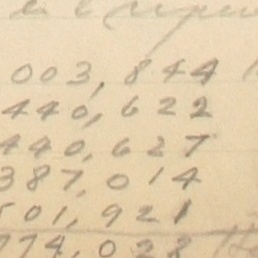 003,844
440,622
440,627
387,014
501,921
774,028